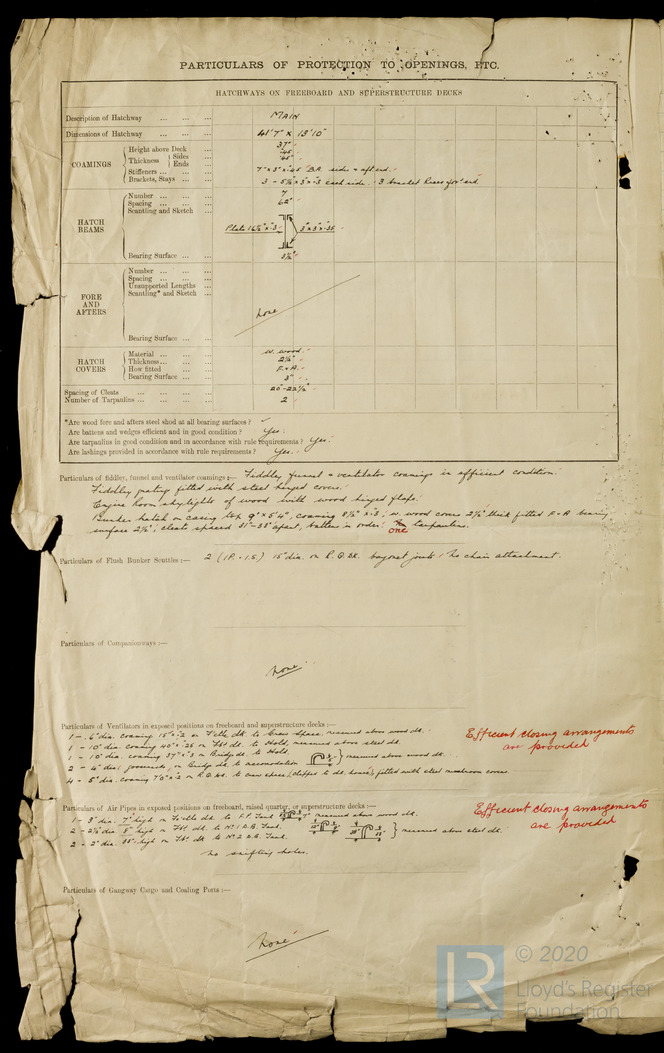 PARTICULARS OF PROTECTION TO OPENINGS, ETC.
HATCHWAYS ON FREEBOARD AND SUPERSTRUCTURE DECKS
Description of Hatchway ... ... ... MAIN
Dimensions of Hatchway ... ... ... 41'7" x 13'10"
COAMINGS
Height above Deck ... 37"
Thickness { Sides ... .45
Ends ... .45"
Stiffeners ... ... ... 7" x 3" x .45 B.A. sides & aft end.
Brackets, Stays ... ... 3 - 5½ x 3 x .3 each side. 3 bracket for'd end
HATCH BEAMS
Number ... ... ... 7
Spacing ... ... ... 62"
Scantling and Sketch ...
Plate 16½" x .3 3" x 3" x .35
Bearing Surface ... ... 3½"
FORE AND AFTERS
Number ... ... ...
Spacing ... ... ...
Unsupported Lengths ...
Scantling* and Sketch ...
None
Bearing Surface ... ...
HATCH COVERS
Material ... ... ... W. wood.
Thickness ... ... ... 2½"
How fitted ... ... F & A.
Bearing Surface ... ... 3"
Spacing of Cleats ... ... ... ... 20"-22½"
Number of Tarpaulins ... ... ... ... 2
*Are wood fore and afters steel shod at all bearing surfaces ?
Are battens and wedges efficient and in good condition ? Yes.
Are tarpaulins in good condition and in accordance with rule requirements ? Yes.
Are lashings provided in accordance with rule requirements ? Yes.
Particulars of fiddley, funnel and ventilator coamings :— Fiddley funnel & ventilator coamings in efficient condition.
Fiddley grating fitted with steel hinged covers.
Engine room skylights of wood with wood hinged flaps.
Bunker hatch on casing top 9' x 5'4", coaming 8½" x .3, W. wood covers 2½" thick fitted F & A bearing
surface 2½", cleats spaced apart, battens in order. one tarpaulin.
Particulars of Flush Bunker Scuttles :— 2 (1P. & 1S.) 15" dia. on R.Q.DK. bayonet joints. No chain attachment.
Particulars of Companionways :—
None
Particulars of Ventilators in exposed positions on freeboard and superstructure decks :—
1 - 6" dia. coaming 15" x .2 on F'cstle dk. to Crew space, measured above wood dk.
1 - 10" dia. coaming 40" x .25 on F'bd dk. to Hold, measured above steel dk.
1 - 10" dia. coaming 37" x .3 on Bridge dk. to Hold.
2 - 4" dia. goosenecks on Bridge dk. to accomodation } measured above wood dk.
4 - 5" dia. coaming on R.Q.DK. to crew space, (clipped to dk. house), fitted with steel mushroom covers.
Efficient closing arrangements
are provided
Particulars of Air Pipes in exposed positions on freeboard, raised quarter, or superstructure decks :—
1 - 3" dia. 7" high on F'cstle dk. to F.P. Tank measured above wood dk.
2 - 2½" dia. 8" high on F'bd dk. to No. 1 D.B. Tank.
2 - 2" dia. 35" high on F'bd dk. to No. 2 D.B. Tank. } measured above steel dk.
No snifting holes.
Efficient closing arrangements
are provided
Particulars of Gangway Cargo and Coaling Ports :—
None
LR © 2020
Lloyd's Register
Foundation